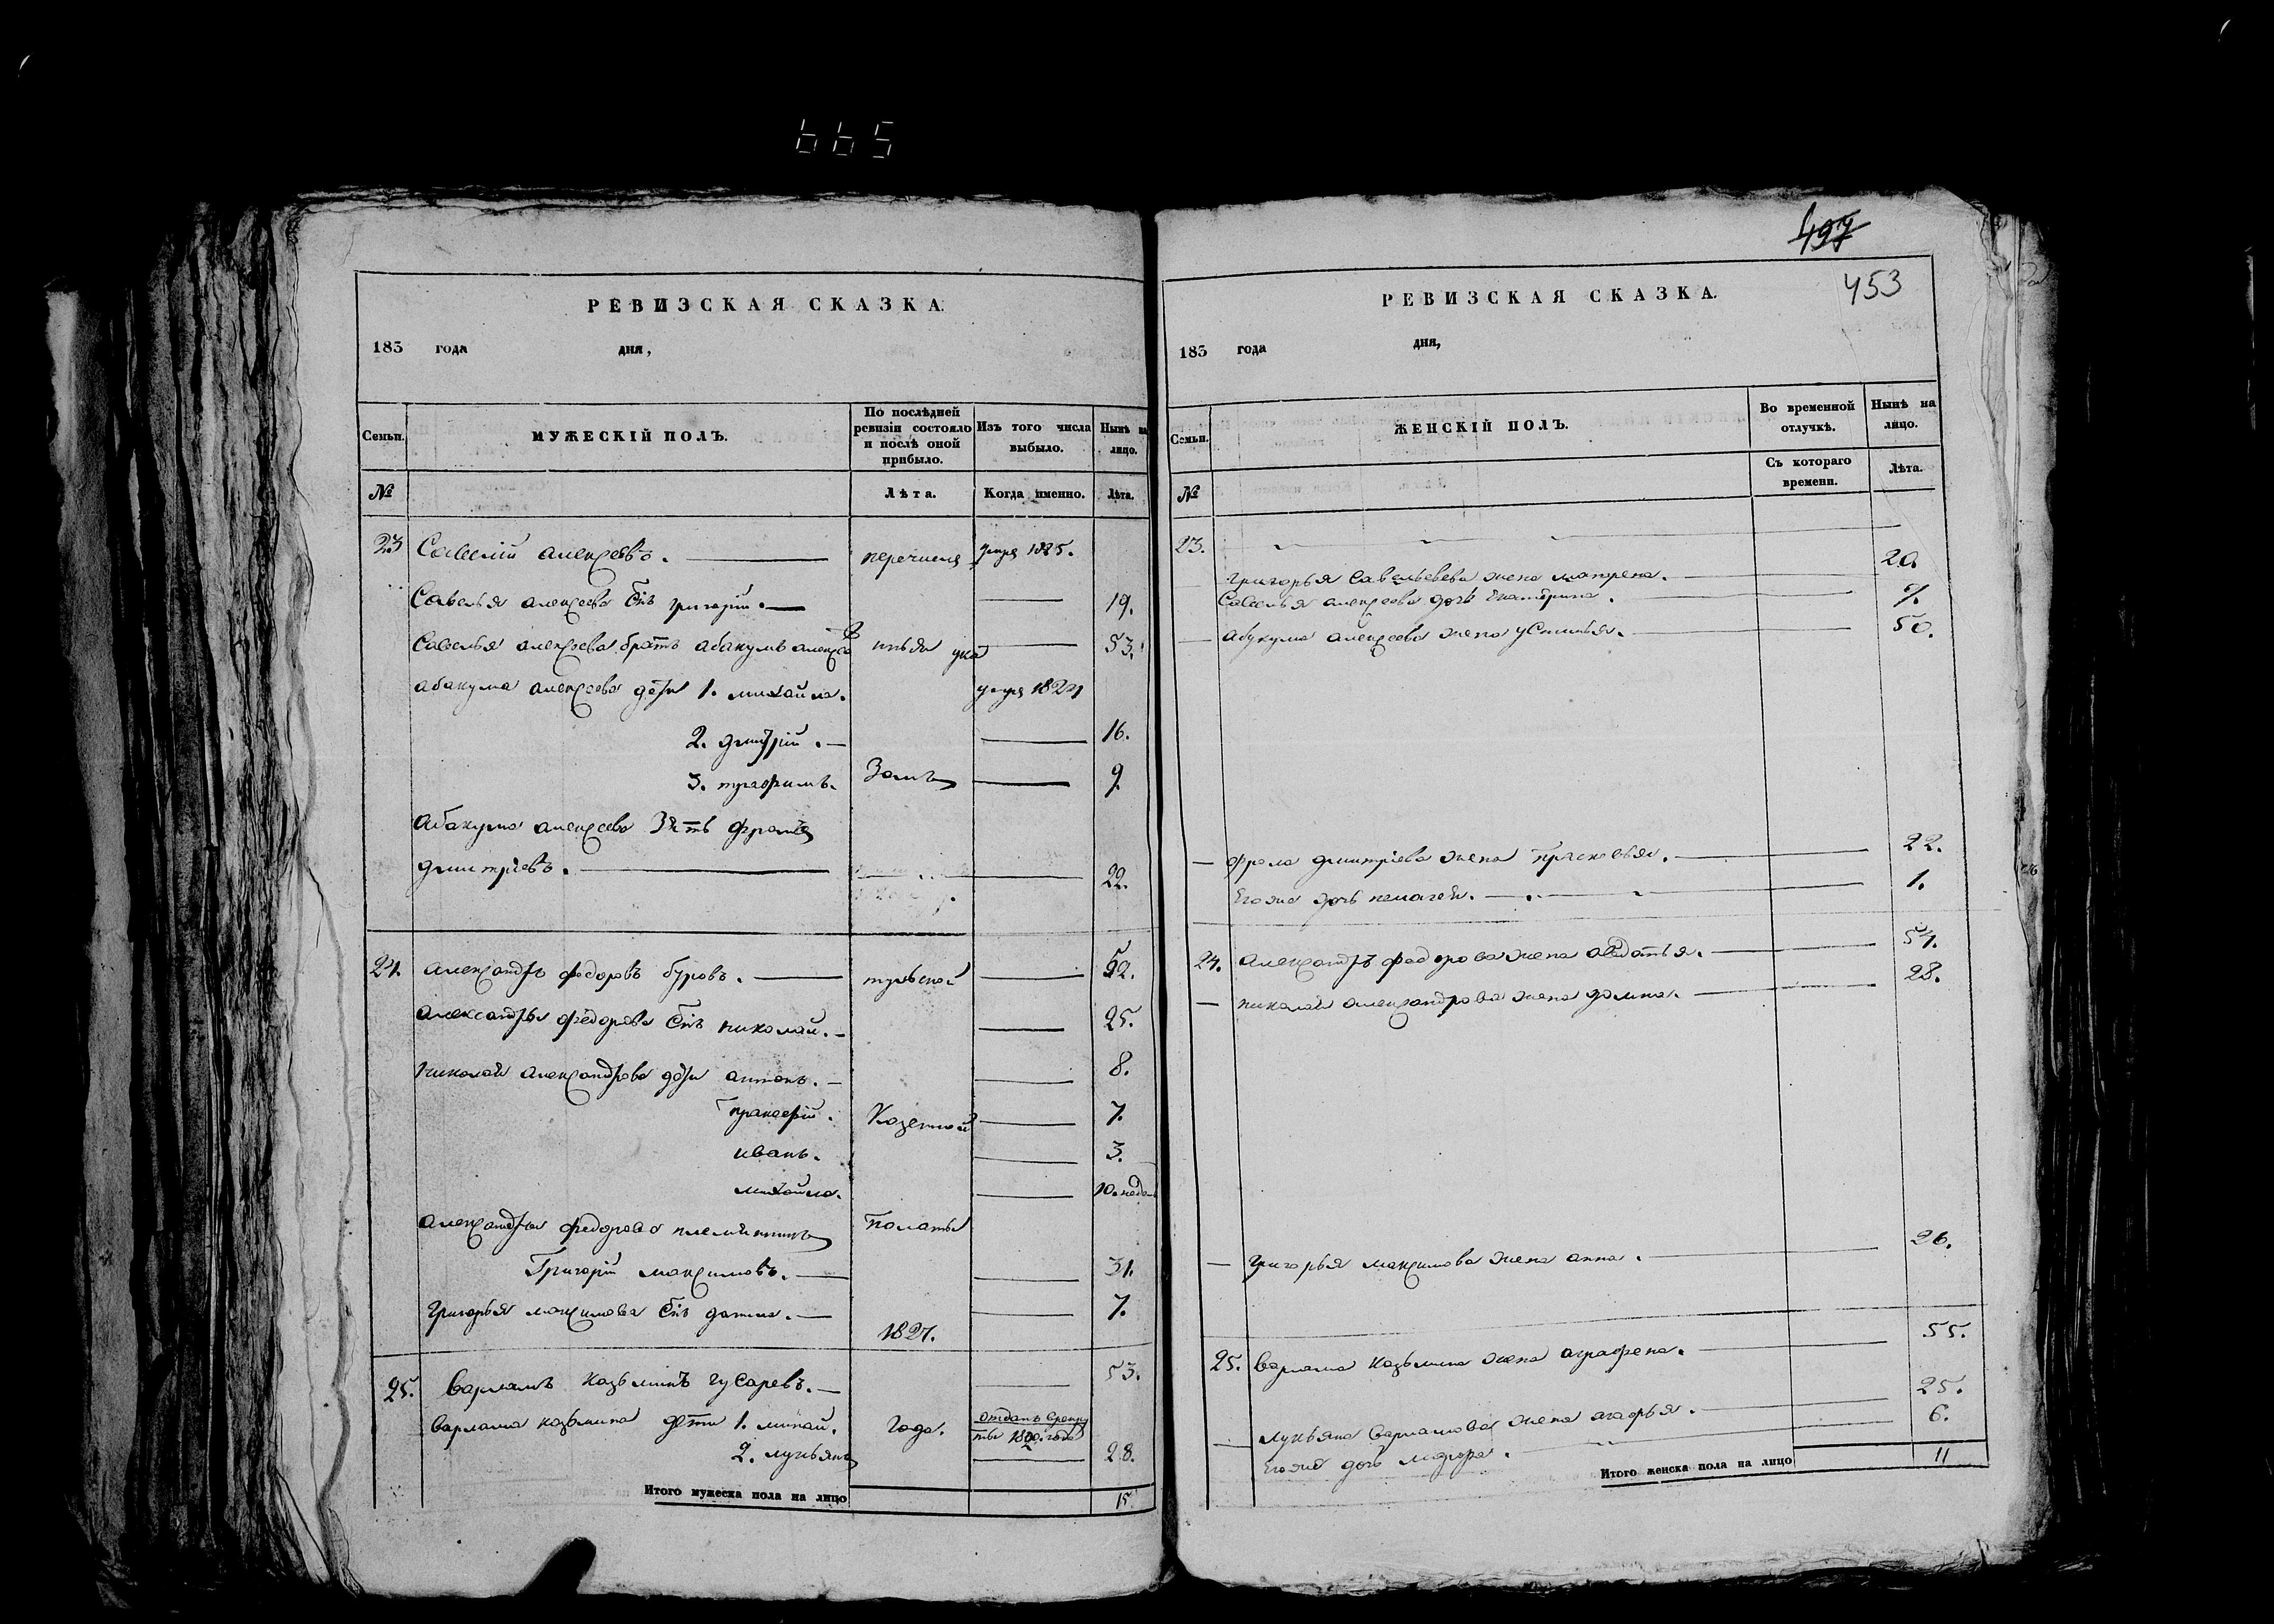 665
РЕВИЗСКАЯ СКАЗКА.
183 года дня,
Семьи. МУЖЕСКІЙ ПОЛЪ. По послѣдней ревизіи состояло и послѣ оной прибыло. Изъ того числа выбыло. Нынѣ на лицо.
№ Лѣта. Когда именно. Лѣта.
23 Савелій алексѣевъ. перечисле умре 1825.
Савелья алексѣева Снъ григорій. 19.
Савелья алексѣева братъ абакумъ алексѣевъ 53.
абакума алексѣева дѣти 1. михайла. умре
2. дмитрій. 16.
3. трафимъ. 9.
Абакума алексѣева Зять фролъ
дмитріевъ. 22.
24. александръ федоровъ буровъ. тульской 52.
александра федорова Снъ николай. 25.
николая александрова дѣти антонъ. 8.
Казенной 7.
иванъ. 3.
михайла. 10. недель
александра федорова племянникъ Полаты
Григорій максимовъ. 31.
Григорья максимова Снъ 7.
1827.
25. варламъ казьминъ гусаревъ. 53.
варлама казьмина дѣти 1. минай. года. отданъ
2. лукьянъ 28.
Итого мужеска пола на лицо 15
497
453
РЕВИЗСКАЯ СКАЗКА.
183 года дня,
Семьи. ЖЕНСКІЙ ПОЛЪ. Во временной отлучкѣ. Нынѣ на лицо.
№ Съ котораго времени. Лѣта.
23.
григорья савельева жена матрена. 20
Савелья алексѣева дочь екатерина.
абукума алексѣева жена устинья. 50.
фрола дмитріева жена Прасковья. 22.
Егоже дочь пелагея. 1.
24. александръ федорова жена авдатья. 54.
николая александрова жена домна. 28.
григорья максимова жена анна. 26.
25. варлама казьмина жена аграфена. 55.
лукьяна варламова жена агафья. 25.
Егоже дочь марфа. 6.
Итого женска пола на лицо 11